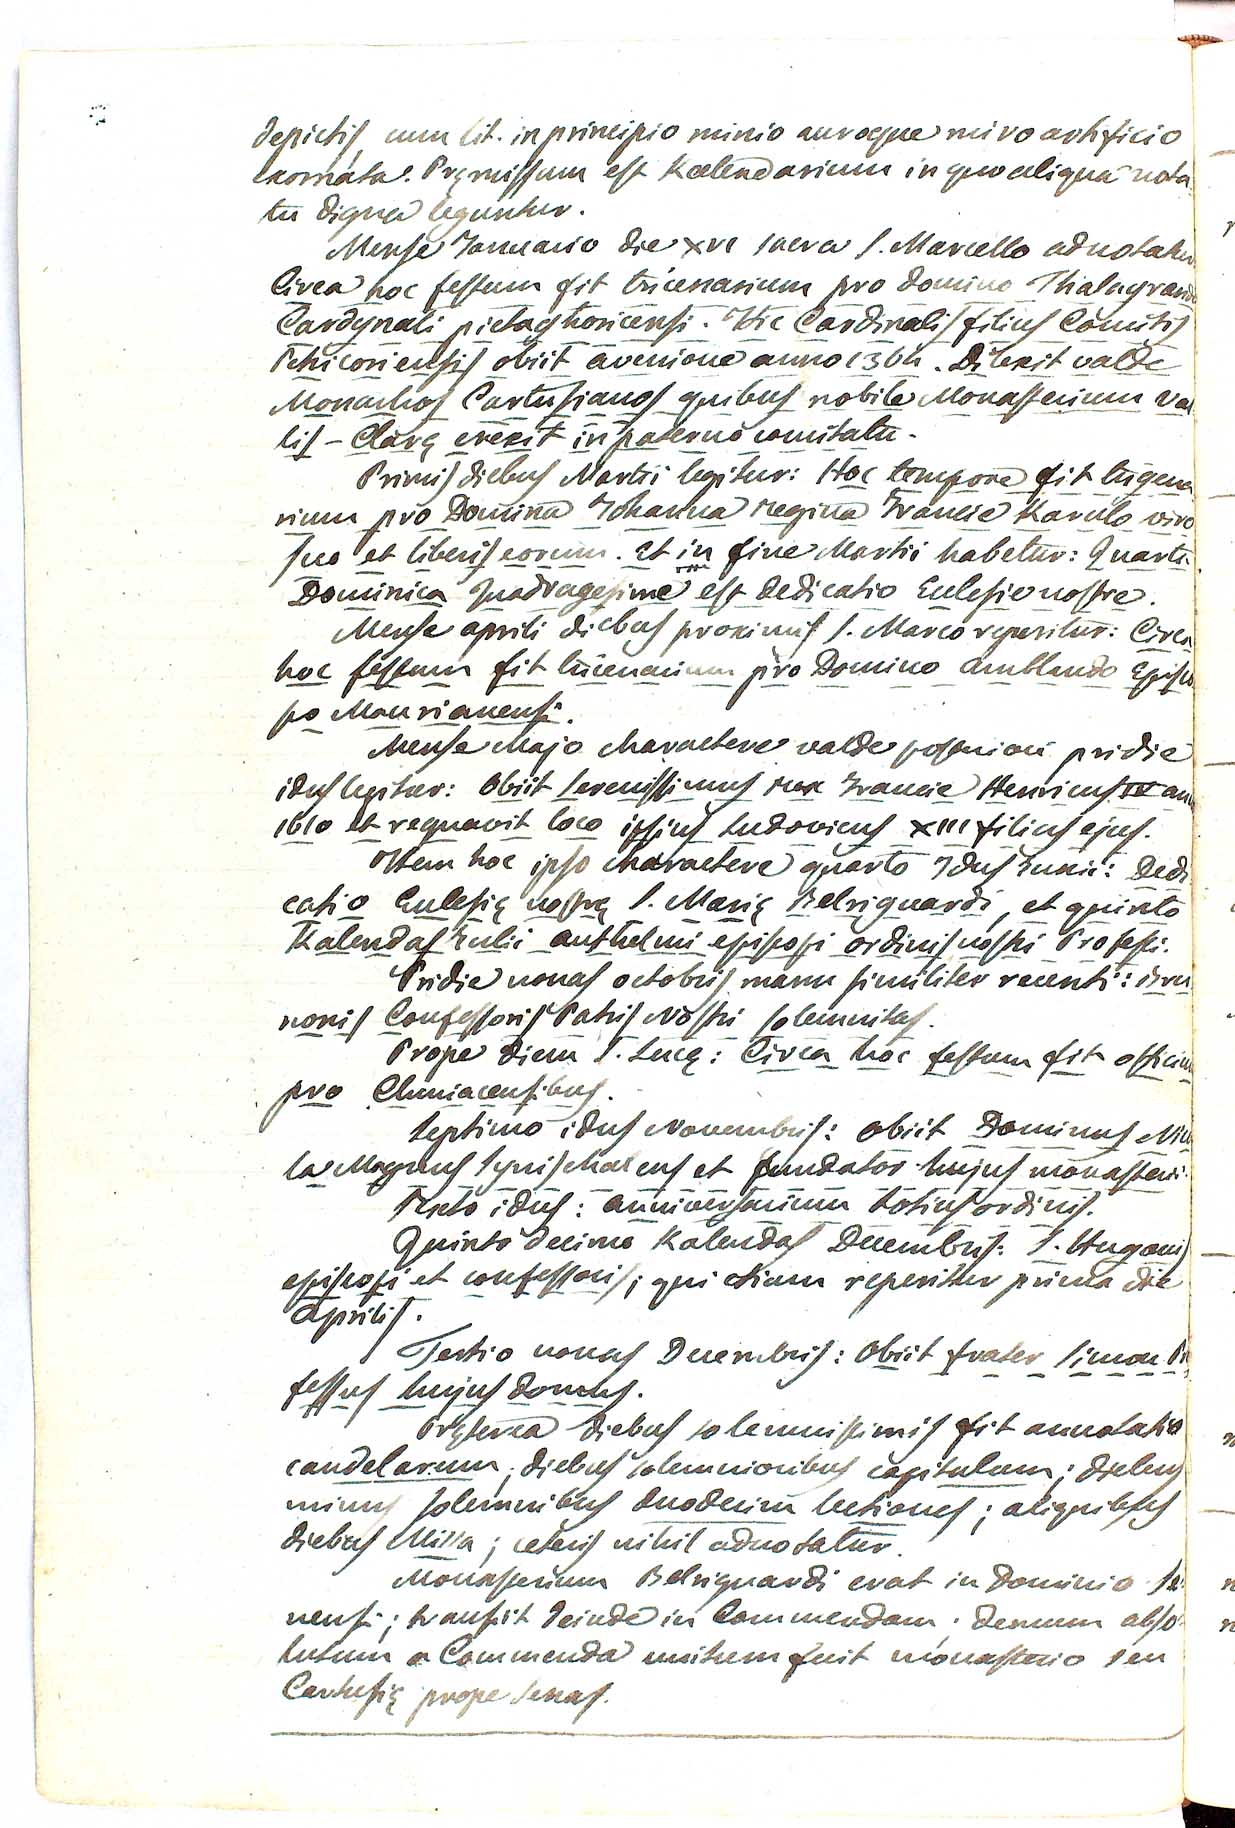 depictis, cum lit. in principio minio auroque miro artificio
exornata. Pręmissum est Kalendarium in quo aliqua nota
tu digna leguntur.
Mense Januario die XVI sacra S. Marcello adnotatur
Circa hoc festum fit tricenarium pro domino Thalayrando
Cardynali pictaghoricensi. Hic Cardinalis filius Comitis
Petricoriensis obiit avenione anno 1364. Dilexit valde
Monachos Cartusianos quibus nobile Monasterium val
lis - Clarę erexit in paterno comitatu.
Primis diebus Martii legitur: Hoc tempore fit trigena
rium pro Domina Johanna Regina Francie Karulo viro
suo et liberis eorum. Et in fine Martii habetur: Quarta
Dominica Quadragesime est dedicatio Eclesie nostre.
Mense aprili diebus proximis S. Marco reperitur: Circa
hoc festum fit tricenarium pro Domino Amblardo Episco
po Maurianensi.
Mense Majo charactere valde posteriori pridie
idus legitur: Obiit serenissimus rex Francie Henricus IV an
1610 et regnavit loco ipsius Ludovicus XIII filius ejus.
Item hoc ipso charactere quarto Idus Junii: Dedi
catio Eclesię nostrę S. Marię Belriguardi, et quinto
Kalendas Julii anthelmi episcopi ordinis nostri Professi.
Pridie nonas octobris manu similiter recenti: Bru
nonis Confessoris Patris Nostri solemnitas.
Prope diem S. Lucę: Circa hoc festum fit officium
pro Cluniacensibus.
Septimo idus Novembris: Obiit Dominus Nico
la Magnus Syniscalcus et fundator hujus monasterii.
Sexto idus: anniversarium totius ordinis.
Quinto decimo Kalendas Decembris: S. Hugonis
episcopi et confessoris; qui etiam reperitur prima die
Aprilis.
Tertio nonas Decembris: Obiit frater Simon Pro
fessus hujus domus.
Pręterea diebus solemnissimis fit annotatio
candelarum; diebus solemnioribus capitulum; diebus
minus solemnibus duodecim lectiones; aliquibus
diebus Missa; ceteris nihil adnotatur.
Monasterium Belriguardi erat in Dominio Se
nensi; transiit deinde in Commendam; demum abso
lutum a Commenda unitum fuit monasterio seu
Cartusię prope Senas.